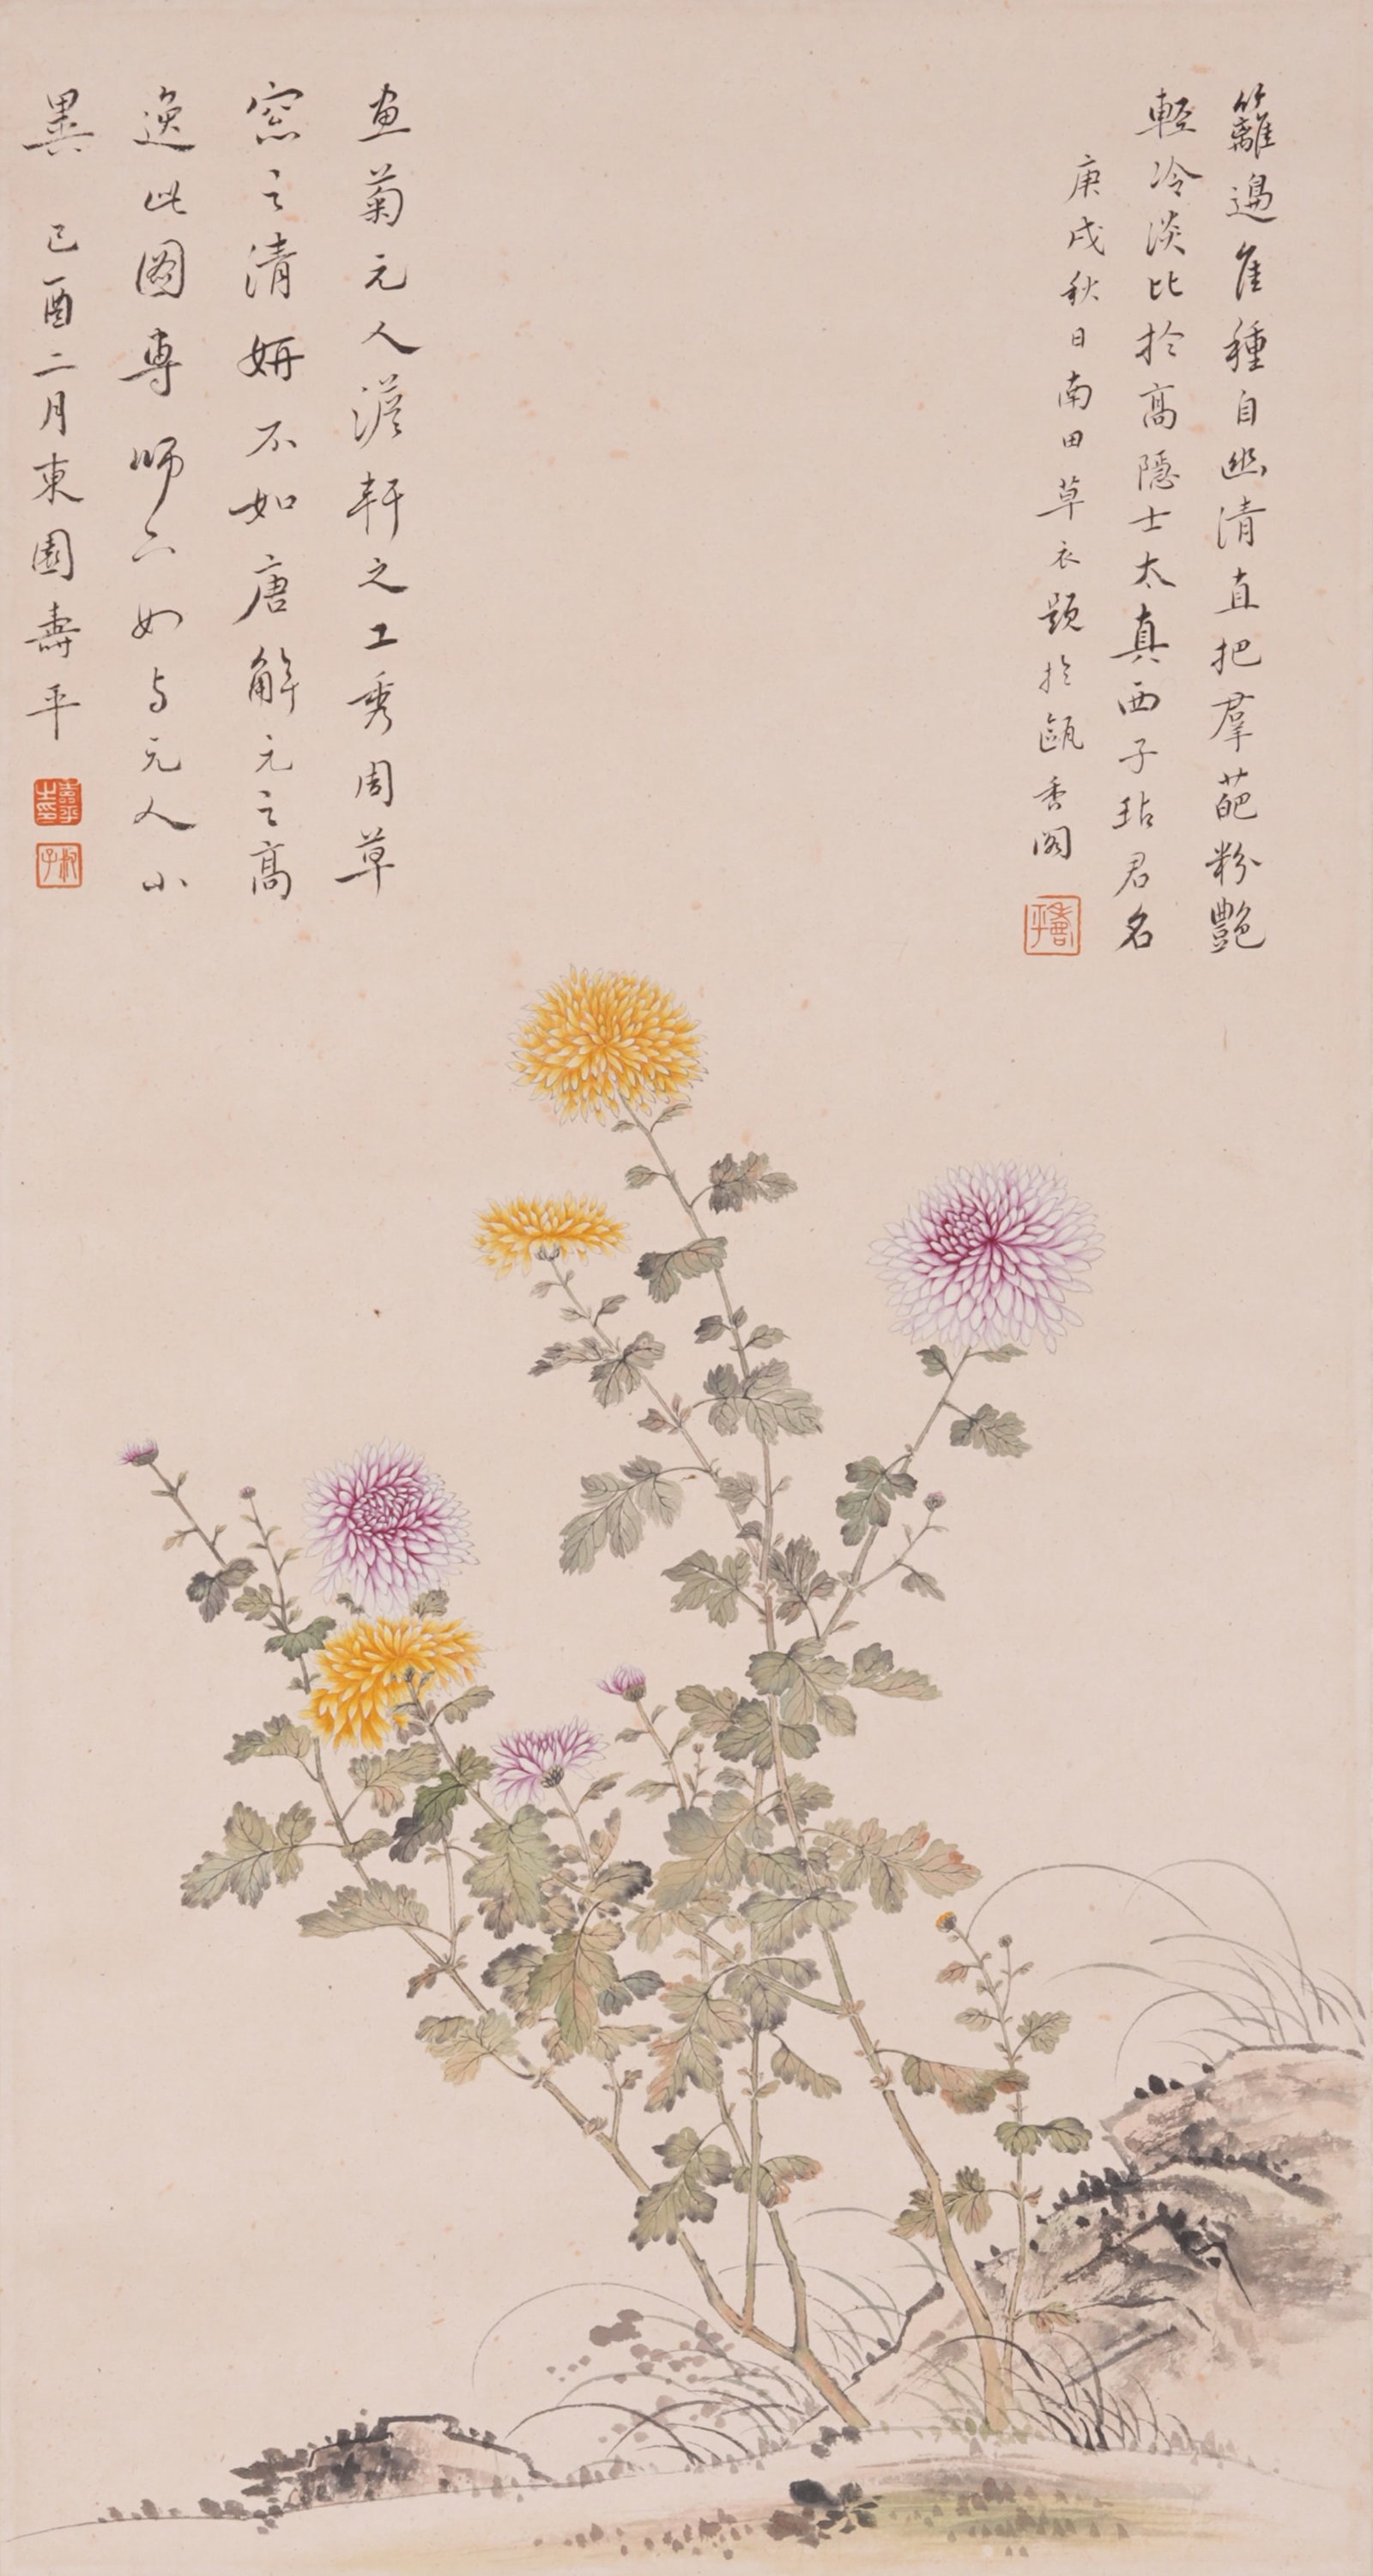 籬邊隹種自幽清直把羣葩粉艷
輕冷淡比於高隱士太真西子玷君名
庚戌秋日南田草衣題於甌香閣
壽平
畫菊元人澹軒之工秀周草
窓之清妍不如唐解元之高
逸此圖專師六如与元人小
異 己酉二月東園壽平
壽平之印
叔子